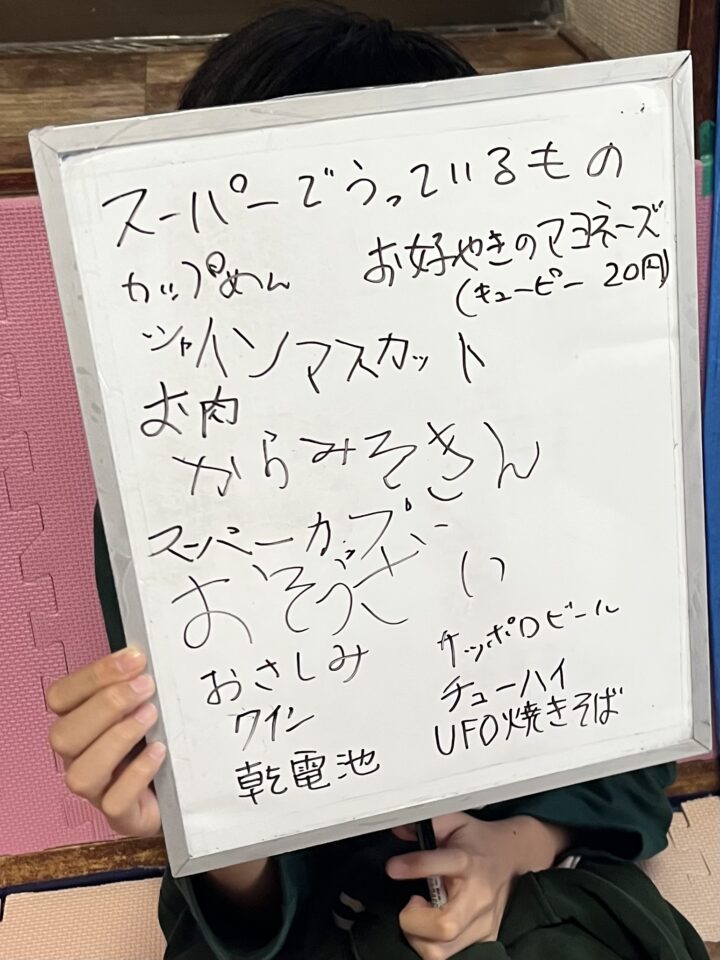 スーパーでうっているもの
カップめん
お好やきのマヨネーズ
(キューピー 20円)
シャインマスカット
お肉
からみそきん
スーパーカップ
おそうざい
おさしみ
サッポロビール
ワイン
チューハイ
乾電池
UFO焼きそば